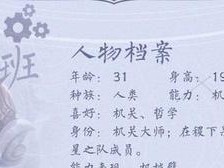 班
人物档案
年龄： 31 身高：19
种族： 人类 能力：机
喜好： 机关、哲学
身份： 机关大师；在稷下
星之队成员。